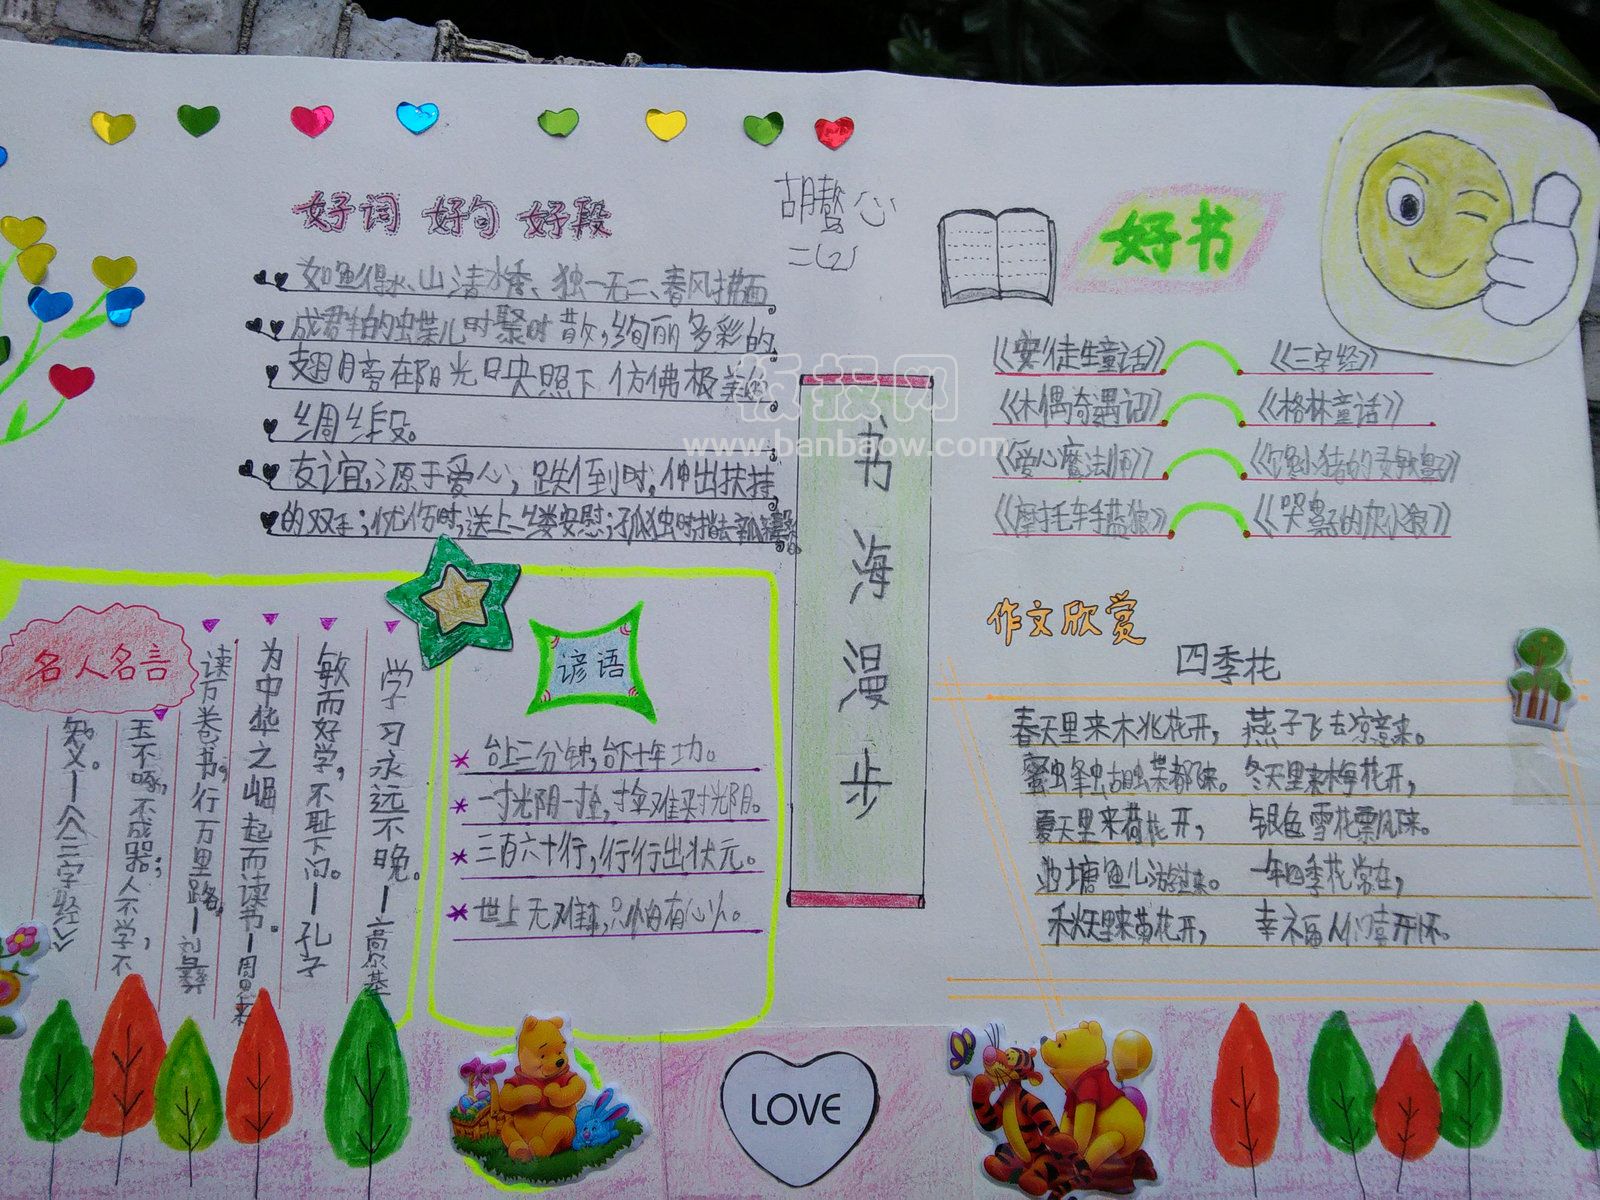 好词 好句 好段
胡骜心
二(2)
如鱼得水、山清水秀、独一无二、春风拂面
成群的蝴蝶儿时聚时散,绚丽多彩的
翅膀在阳光映照下仿佛极美的
绸缎。
友谊,源于爱心;跌倒时,伸出扶持
的双手;忧伤时,送上一缕安慰;孤独时
书海漫步
好书
《安徒生童话》 《三字经》
《木偶奇遇记》 《格林童话》
《爱心魔法师》
《摩托车手蓝狼》 《哭鼻子的灰小狼》
作文欣赏
四季花
春天里来木兆花开,
蜜蜂蝴蝶都来。
夏天里来荷花开,
池塘鱼儿游过来。
秋天里来黄花开,
燕子飞去凉意来。
冬天里来梅花开,
银色雪花飘风来。
一年四季花常在,
幸福人们喜开怀。
名人名言
学习永远不晚。—高尔基
敏而好学,不耻下问。—孔子
为中华之崛起而读书。—周恩来
读万卷书,行万里路。—刘彝
玉不啄,不成器;人不学,不
知义。—《三字经》
谚语
台上三分钟,台下十年功。
一寸光阴一寸金,寸金难买寸光阴。
三百六十行,行行出状元。
世上无难事,只怕有心人。
LOVE
版报网
www.banbaow.com